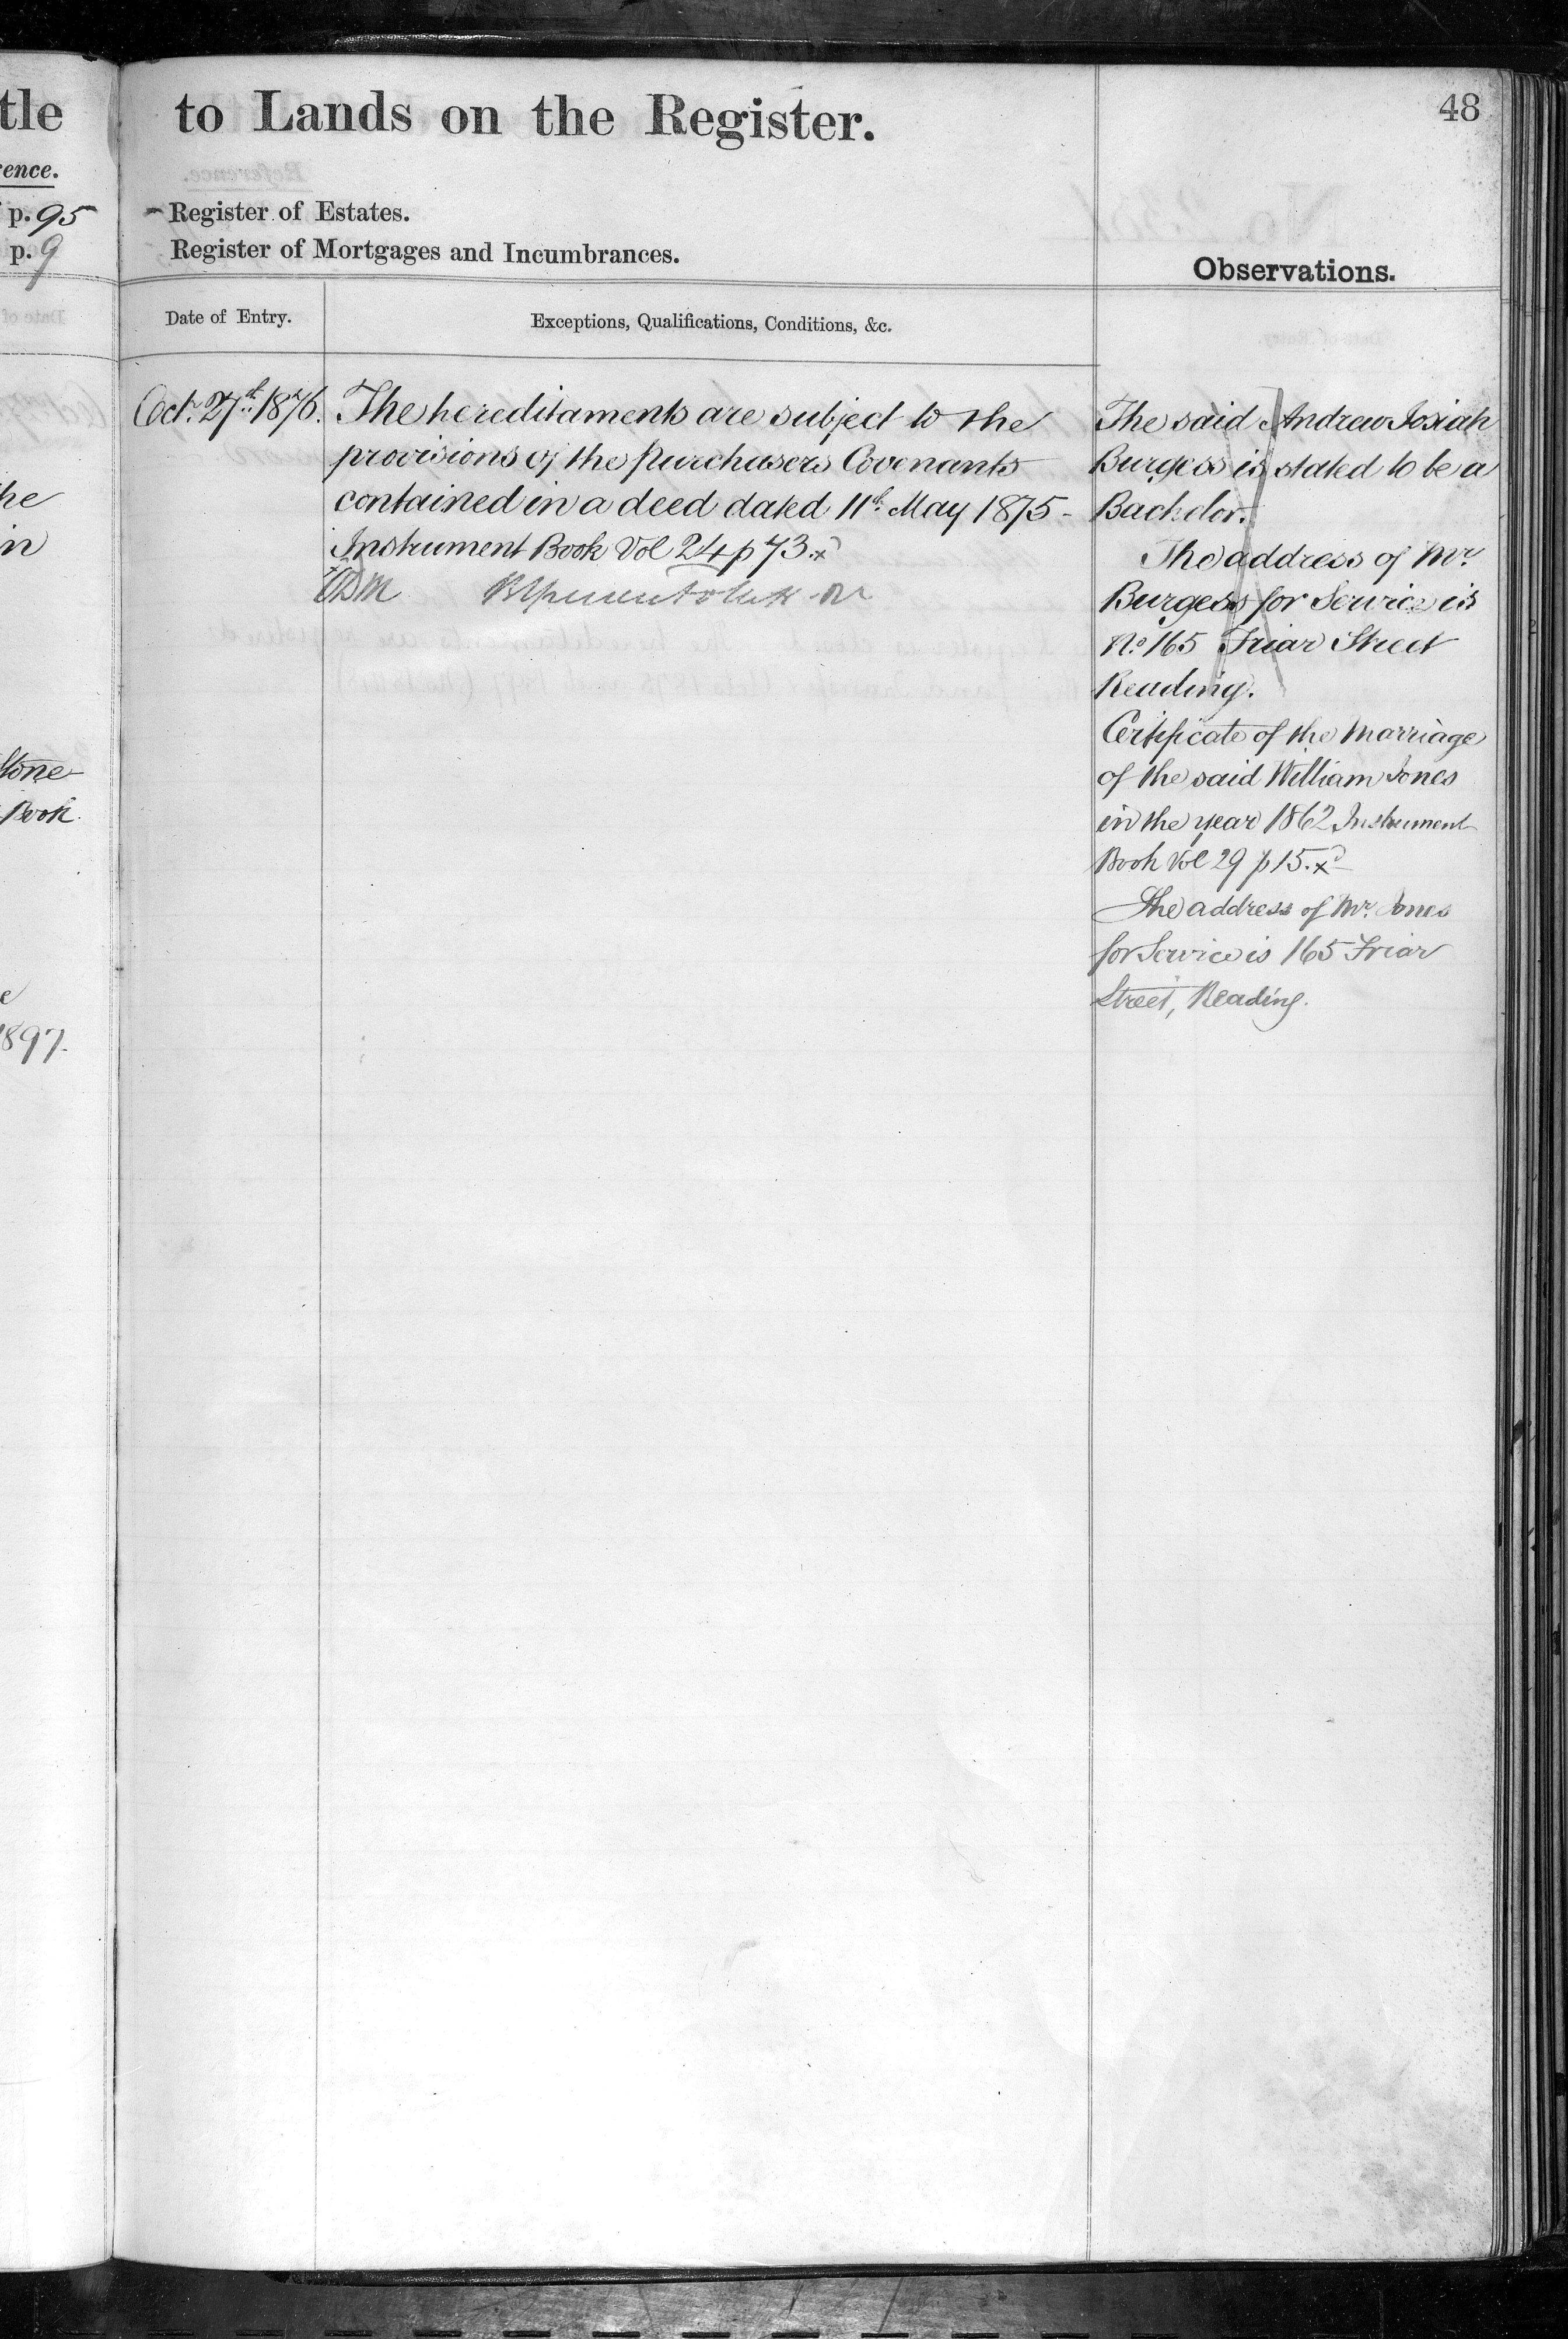 tle
rence.
p. 95
p. 9
he
in
Stone
Book.
e
1897.
to Lands on the Register.
48
Register of Estates.
Register of Mortgages and Incumbrances.
Observations.
Date of Entry.
Exceptions, Qualifications, Conditions, &c.
Oct. 27th 1876.
The hereditaments are subject to the
provisions of the purchasers Covenants
contained in a deed dated 11th May 1875 -
Instrument Book Vol 24 p 73. x
The said Andrew Josiah
Burgess is stated to be a
Bachelor.
The address of Mr.
Burgess for Service is
No. 165 Friar Street
Reading.
Certificate of the Marriage
of the said William Jones
in the year 1862 Instrument
Book Vol 29 p 15. x
The address of Mr. Jones
for Service is 165 Friar
Street, Reading.